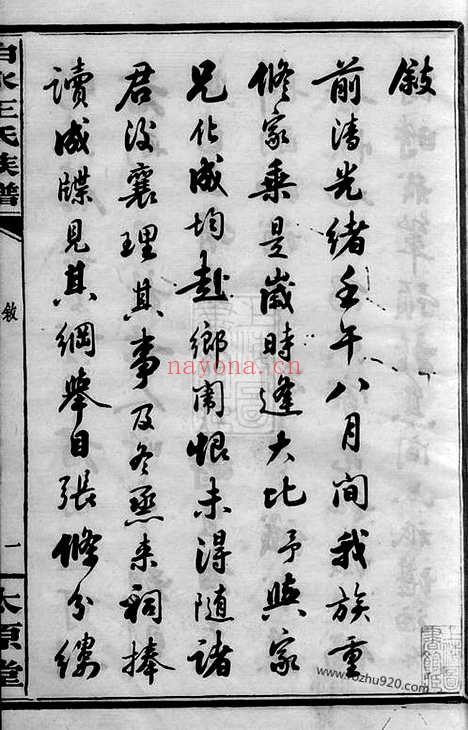 敘
前清光緒壬午八月間我族重
修家乘是歲時逢大比予與家
兄化成均赴鄉闈恨未得隨諸
君後襄理其事及冬烝來祠捧
讀成牒見其綱舉目張條分縷
白水王氏族譜
敘
一
太原堂
nayona.cn
www.rozhu920.com